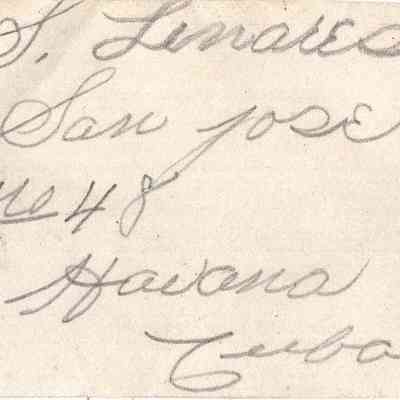 S. Linares
San Jose
No 48
Havana
Cuba